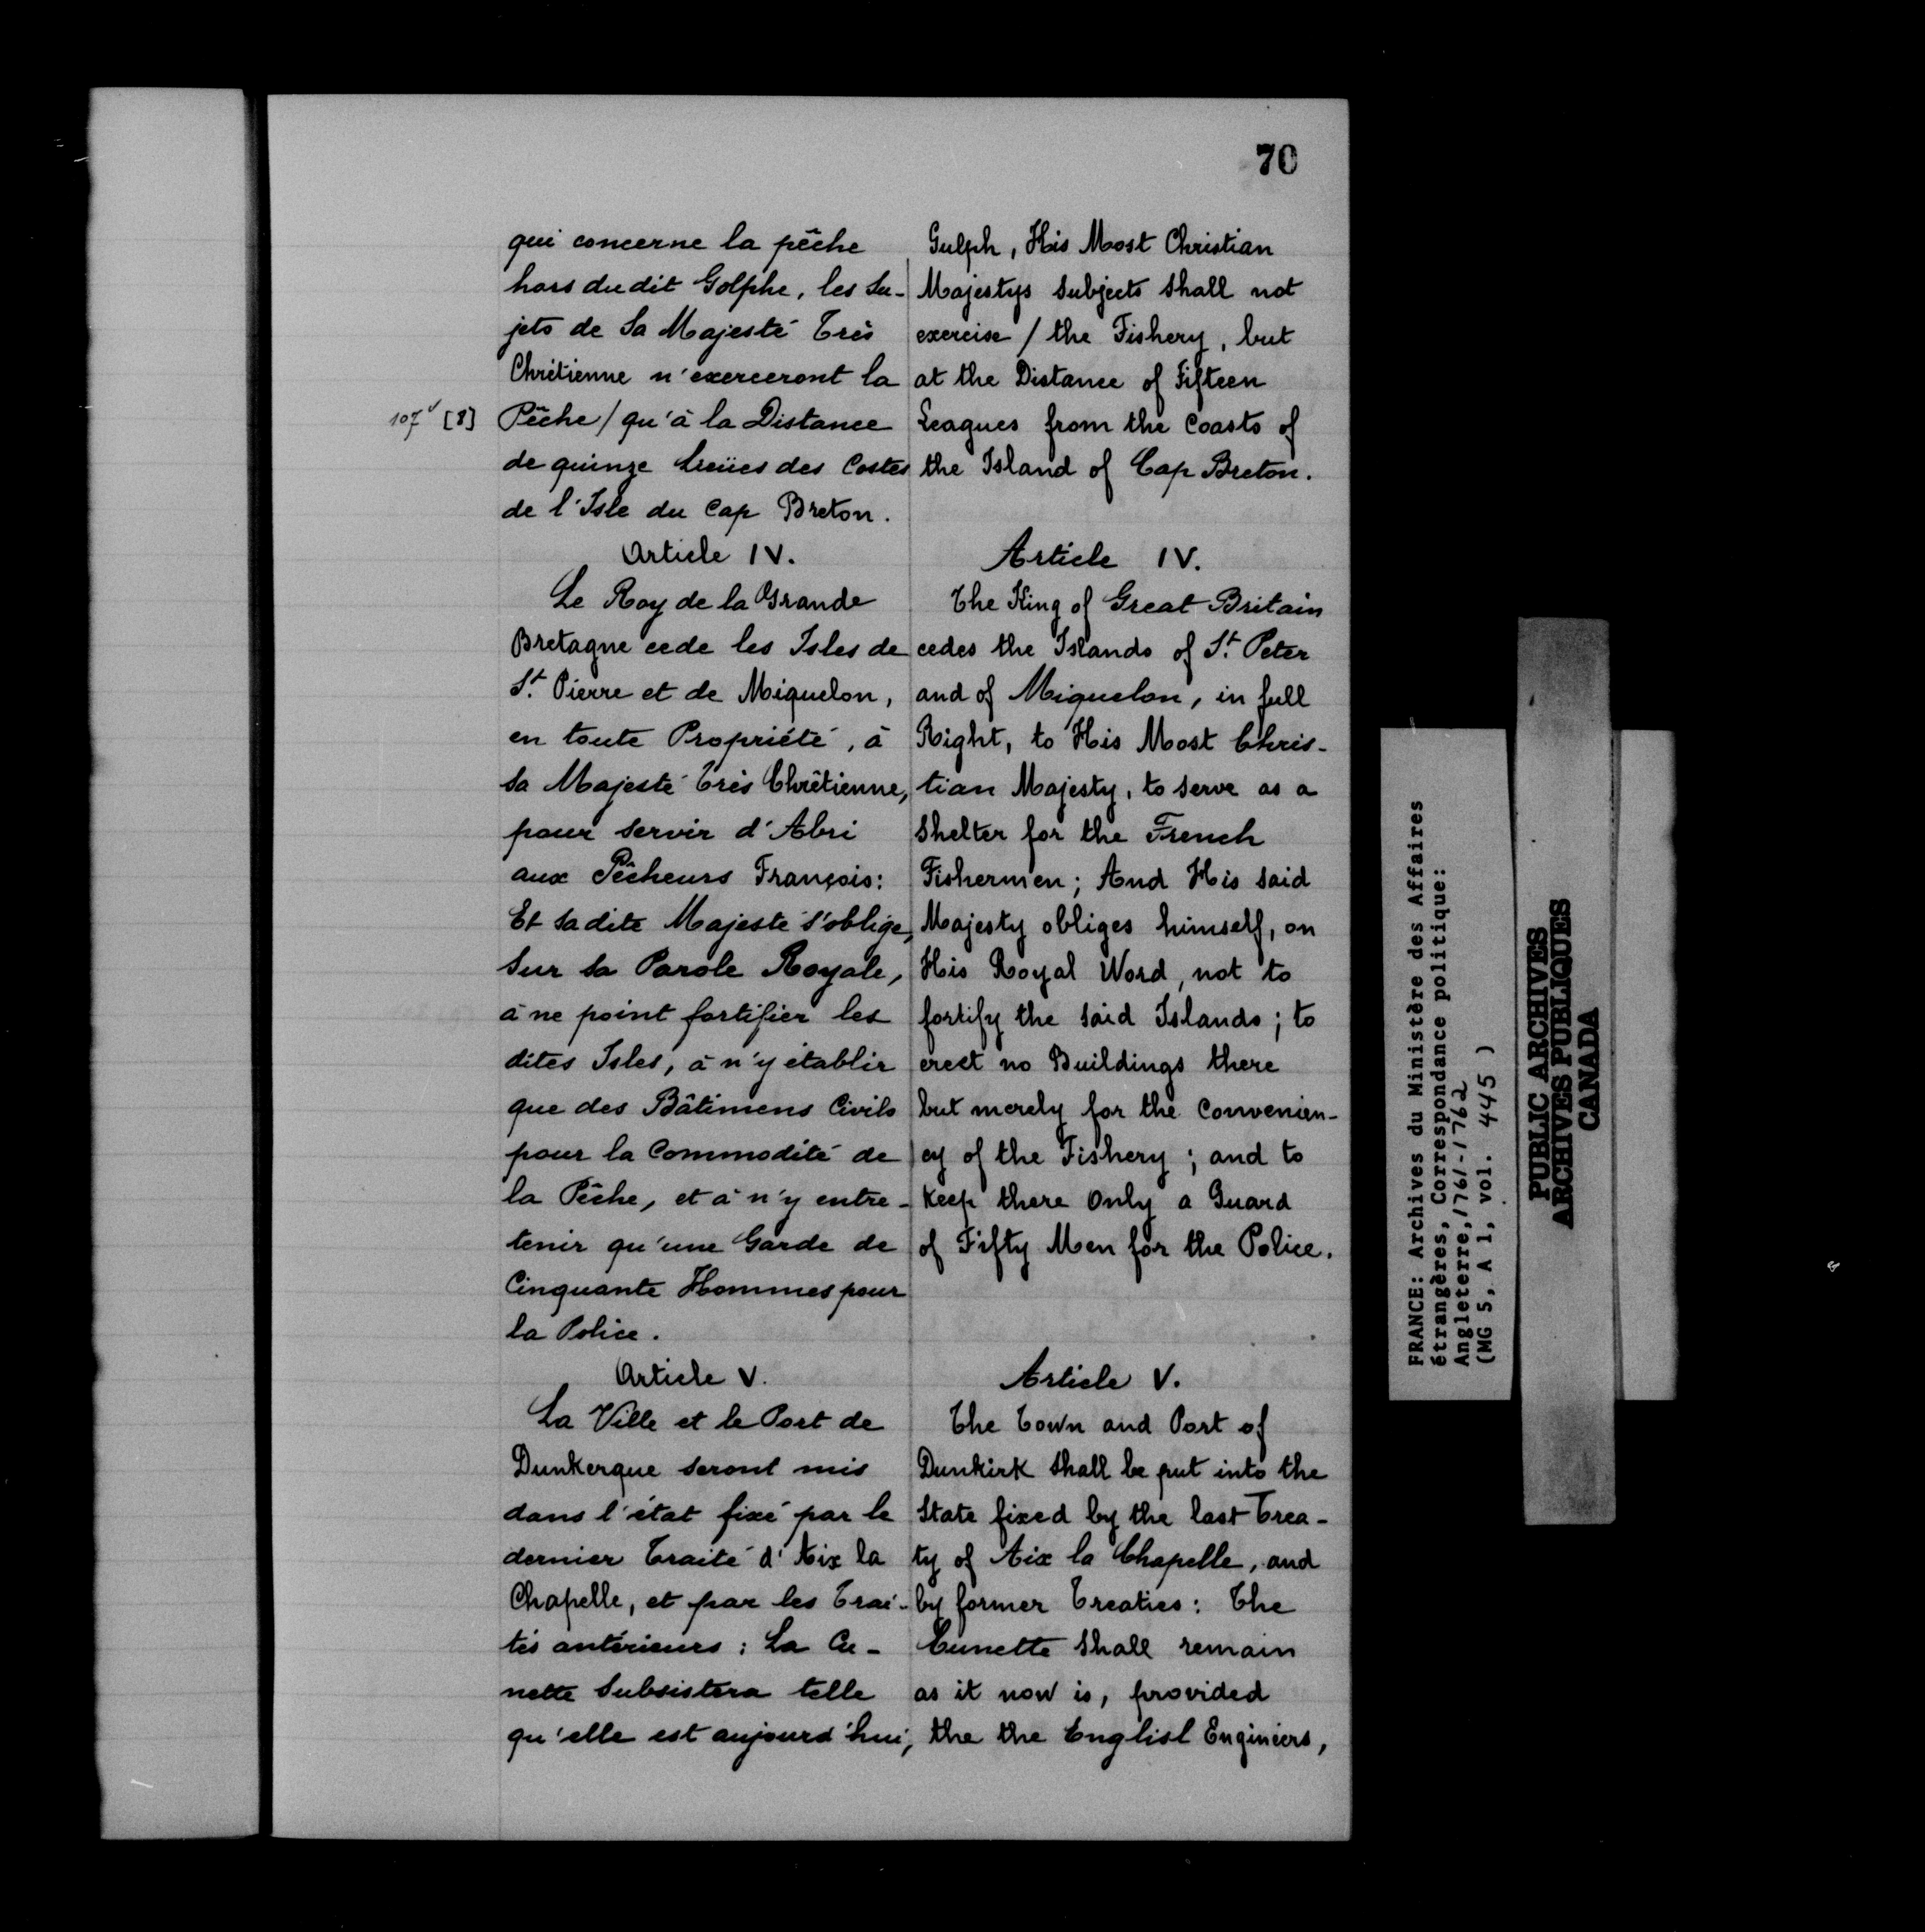 70
qui concerne la pêche
hors du dit Golphe, les Su-
jets de Sa Majesté Très
Chrétienne n'exerceront la
107v [8]
Pêche / qu'à la Distance
de quinze Lieües des Costes
de l'Isle du Cap Breton.
Article IV.
Le Roy de la Grande
Bretagne cede les Isles de
St. Pierre et de Miquelon,
en toute Propriété, à
Sa Majesté Très Chrêtienne,
pour servir d'Abri
aux Pêcheurs François:
Et sa dite Majesté s'oblige,
Sur Sa Parole Royale,
à ne point fortifier les
dites Isles, à n'y établir
que des Bâtimens Civils
pour la Commodité de
la Pêche, et à n'y entre-
tenir qu'une Garde de
Cinquante Hommes pour
la Police.
Article V.
La Ville et le Port de
Dunkerque seront mis
dans l'état fixé par le
dernier Traité d'Aix la
Chapelle, et par les Trai-
tés antérieurs: La Cu-
nette Subsistera telle
qu'elle est aujourd'hui,
Gulph, His Most Christian
Majestys Subjects Shall not
exercise / the Fishery, but
at the Distance of Fifteen
Leagues from the Coasts of
the Island of Cap Breton.
Article IV.
The King of Great Britain
cedes the Islands of St. Peter
and of Miquelon, in full
Right, to His Most Chris-
tian Majesty, to serve as a
Shelter for the French
Fishermen; And His Said
Majesty obliges himself, on
His Royal Word, not to
fortify the Said Islands; to
erect no Buildings there
but merely for the Convenien-
cy of the Fishery; and to
Keep there Only a Guard
of Fifty Men for the Police.
Article V.
The Town and Port of
Dunkirk Shall be put into the
State fixed by the last Trea-
ty of Aix la Chapelle, and
by former Treaties: The
Cunette Shall remain
as it now is, provided
the the Englisl Engineers,
FRANCE: Archives du Ministère des Affaires
étrangères, Correspondance politique:
Angleterre, 1761-1762
(MG 5, A 1, vol. 445 )
PUBLIC ARCHIVES
ARCHIVES PUBLIQUES
CANADA